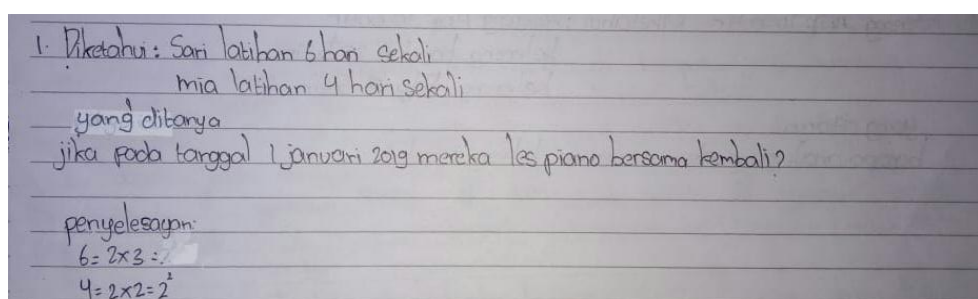 1. Diketahui: Sari latihan 6 hari sekali
mia latihan 4 hari sekali
yang ditanya
jika pada tanggal 1 januari 2019 mereka les piano bersama kembali?
penyelesayan:
6 = 2x3 =
4 = 2x2 = 2²